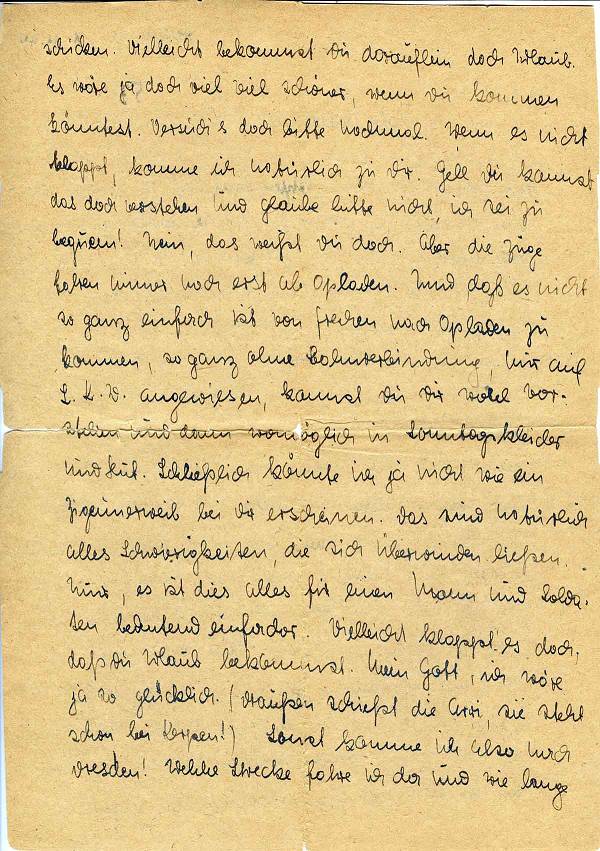 schicken. Vielleicht bekommst Du daraufhin doch Urlaub.
Es wäre ja doch viel viel schöner, wenn Du kommen
könntest. Versuch's doch bitte nochmal. Wenn es nicht
klappt, komme ich natürlich zu Dir. Gell Du kannst
das doch verstehen und glaube bitte nicht, ich sei zu
bequem! Nein, das weißt Du doch. Aber die Züge
fahren immer noch erst ab Opladen. Und daß es nicht
so ganz einfach ist von Frechen nach Opladen zu
kommen, so ganz ohne Bahnverbindung, nur auf
L.K.W. angewiesen, kannst Du Dir wohl vor-
stellen und dann womöglich in Sonntagskleider
und Hut. Schließlich könnte ich ja nicht wie ein
Zigeunerweib bei Dir erscheinen. Das sind natürlich
alles Schwierigkeiten, die sich überwinden ließen.
Nur, es ist dies alles für einen Mann und Solda-
ten bedeutend einfacher. Vielleicht klappt es doch,
daß Du Urlaub bekommst. Mein Gott, ich wäre
ja so glücklich. (Draußen schießt die Arri, sie steht
schon bei Kerpen!) Sonst komme ich also nach
Dresden! Welche Strecke fahre ich da und wie lange